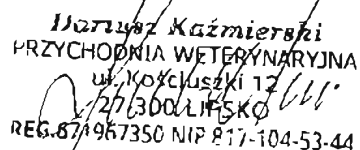 Dariusz Kaźmierski
PRZYCHODNIA WETERYNARYJNA
ul. Kościuszki 12
27-300 LIPSKO
REG.671967350 NIP 817-104-53-44